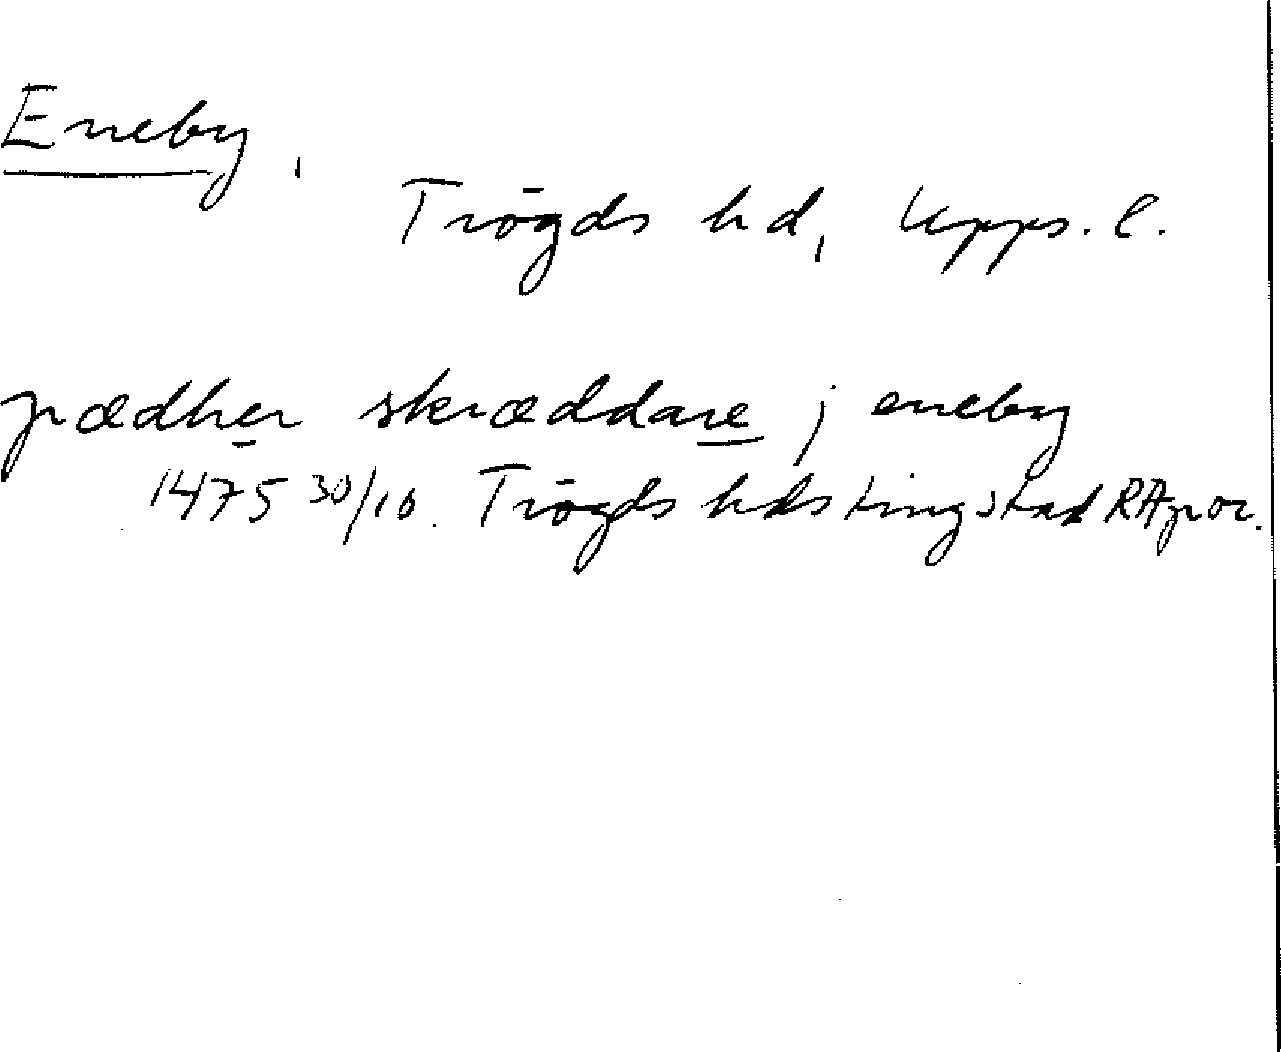 Eneby,
Trögds hd, Upps. l.
pædher skræddare j eneby
1475 30/10. Trögds hds tingstad RApor.